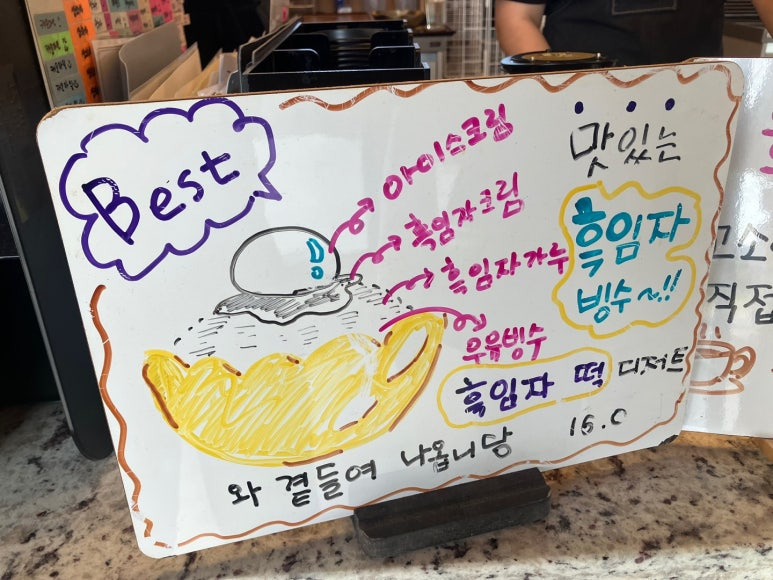 Best
아이스크림
흑임자크림
흑임자가루
우유빙수
맛있는
흑임자
빙수~!!
흑임자 떡 디저트
와 곁들여 나옵니당
15.0
직접